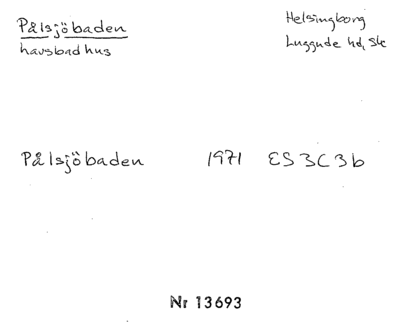 Pålsjöbaden
havsbad hus
Helsingborg
Luggude hd, Sk
Pålsjöbaden 1971 ES 3C 3b
Nr 13693